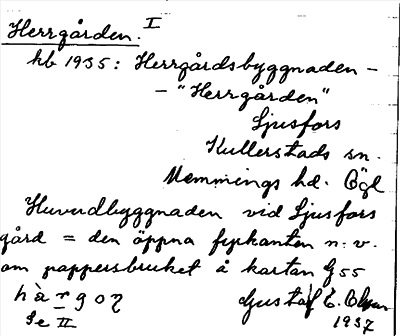 Herrgården. I
hb 1935: Herrgårdsbyggnaden –
– "Herrgården"
Ljusfors
Kullerstads sn.
Memmings hd. Ögl
Huvudbyggnaden vid Ljusfors
gård = den öppna fyrkanten n. v.
om pappersbruket å kartan G 55
Gustaf E. Olson
Se II
1937